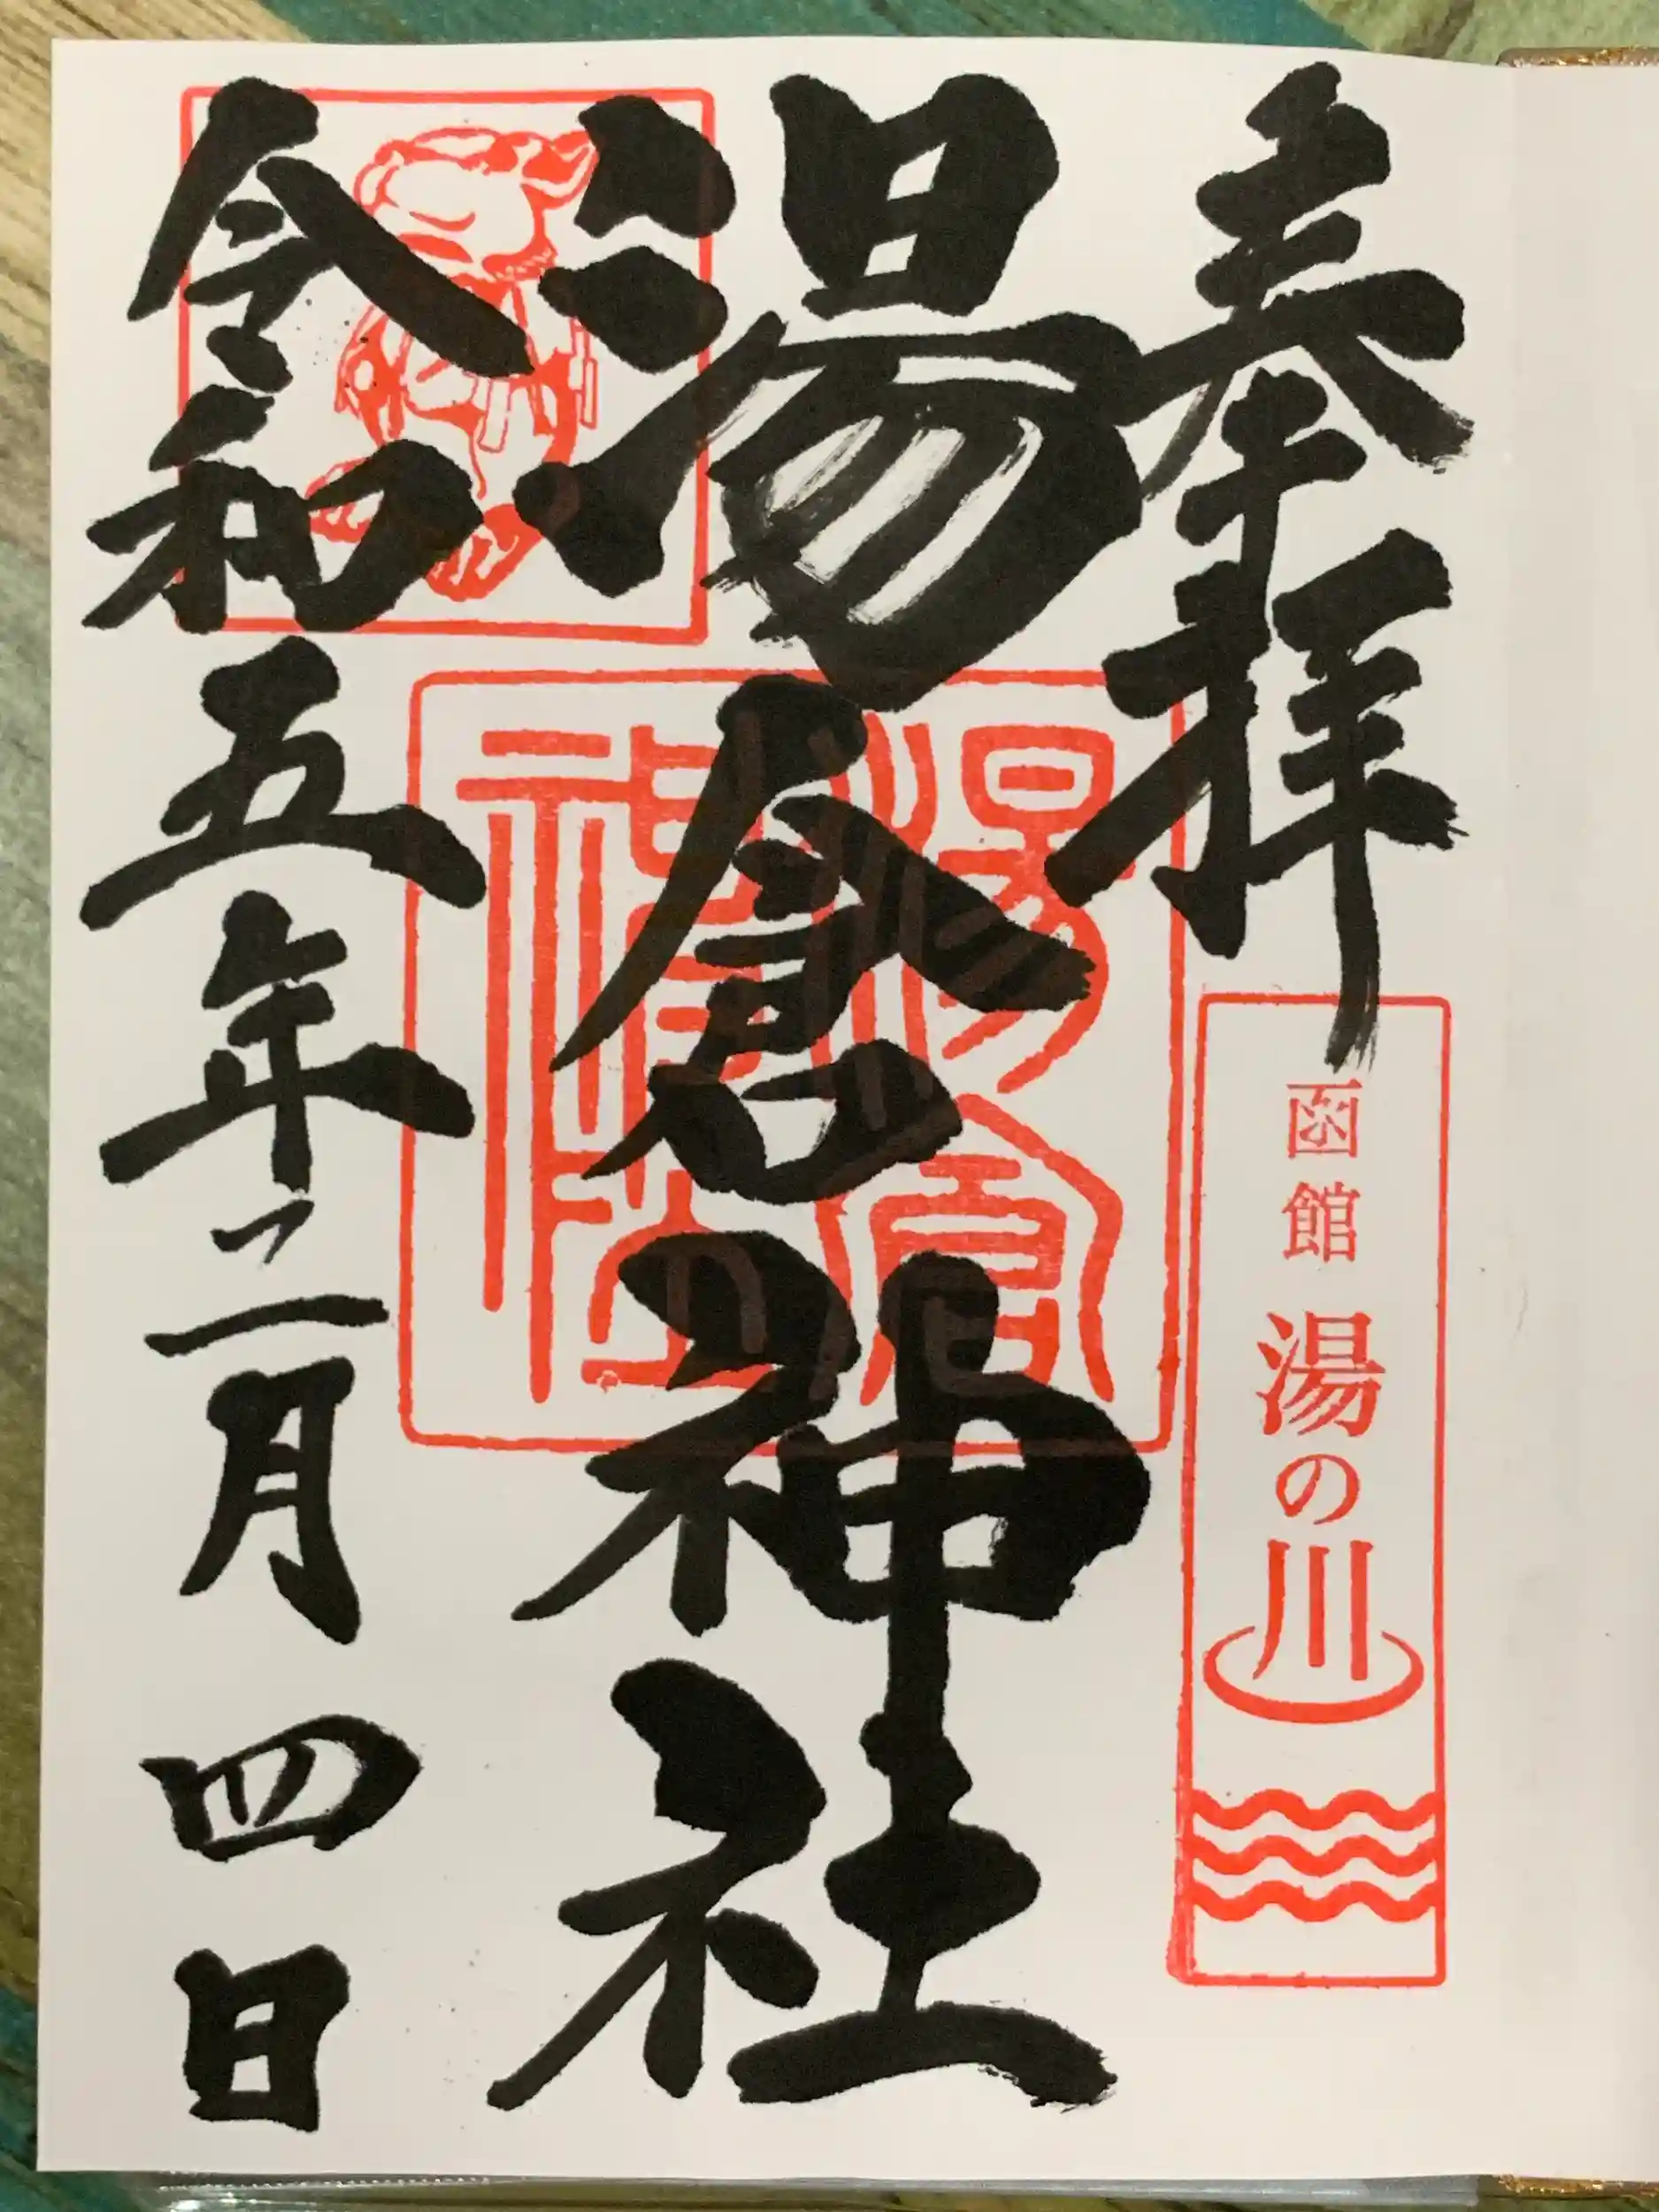 奉拝
函館 湯の川
湯倉神社
湯倉
神社
令和五年二月四日